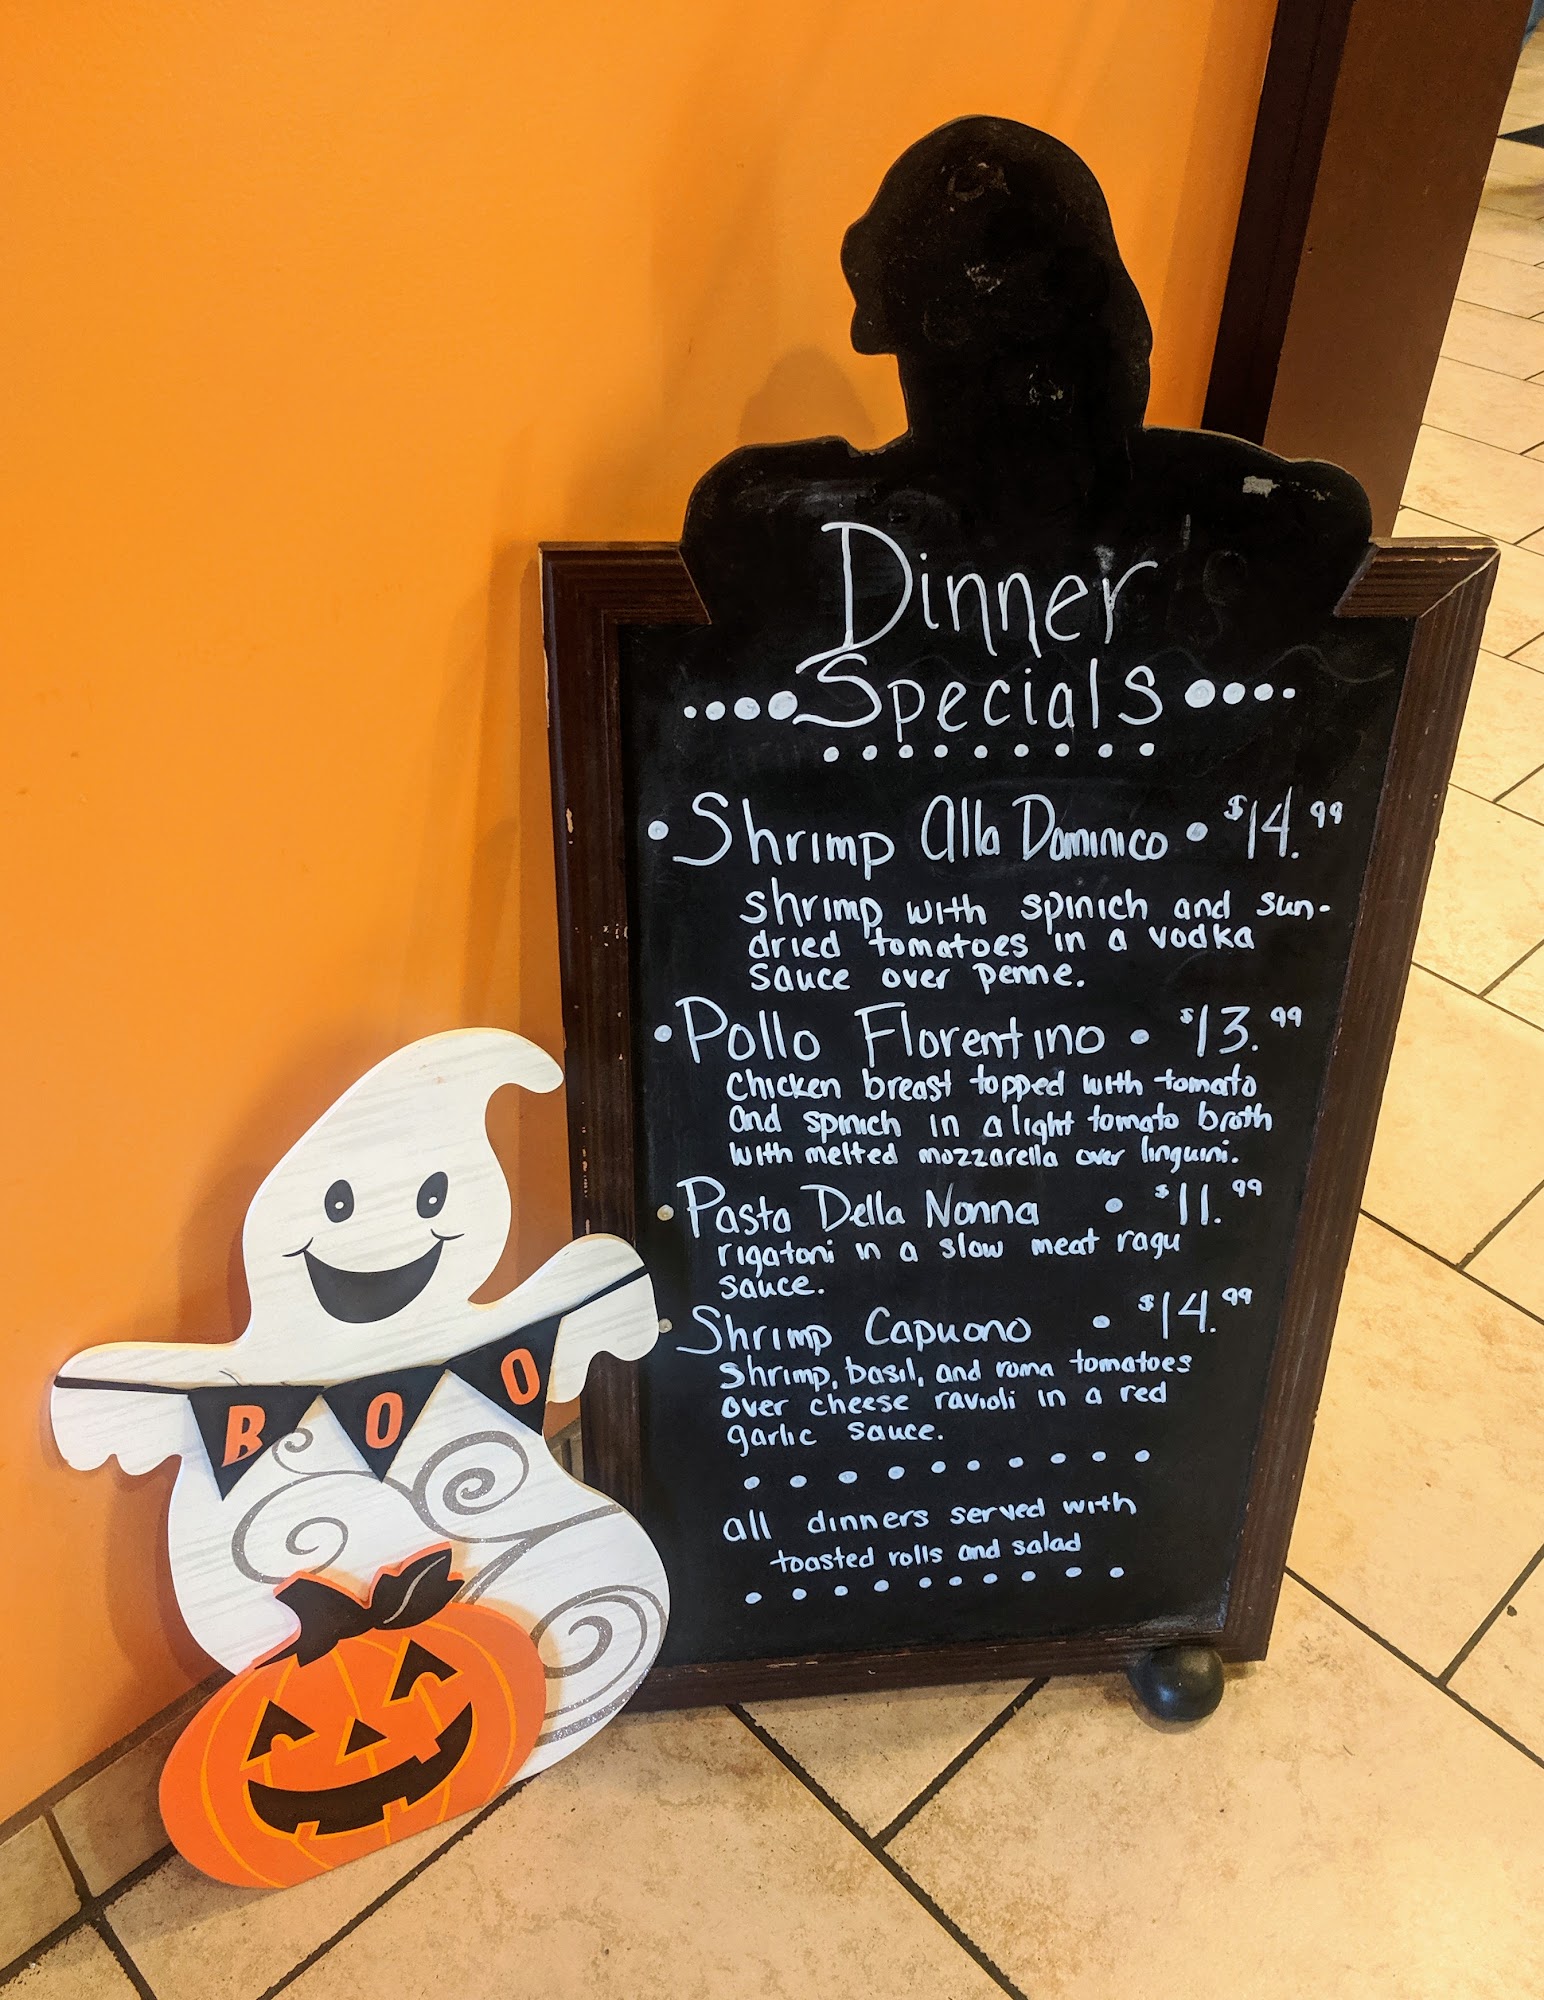 Dinner
Specials
Shrimp Alla Dominico • $14.99
shrimp with spinich and sun-
dried tomatoes in a vodka
sauce over penne.
• Pollo Florentino • $13.99
chicken breast topped with tomato
and spinich in a light tomato broth
with melted mozzarella over linguini.
• Pasta Della Nonna • $11.99
rigatoni in a slow meat ragu
sauce.
• Shrimp Capuono • $14.99
shrimp, basil, and roma tomatoes
over cheese ravioli in a red
garlic sauce.
all dinners served with
toasted rolls and salad
BOO